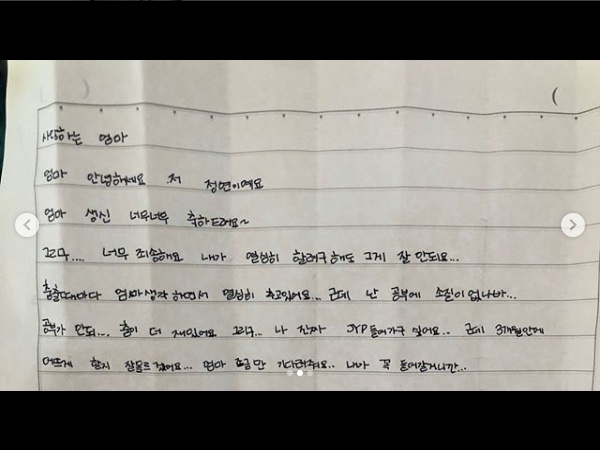 사랑하는 엄마
엄마 안녕하세요 저 정연이에요
엄마 생신 너무너무 축하드려요~
그리구.... 너무 죄송해요 내가 열심히 할래구해도 그게 잘 안되요...
춤출때마다 엄마생각 하면서 열심히 추고있어요... 근데 난 공부에 소질이 없나바...
공부가 안되... 춤이 더 재밌어요 그리구... 나 진짜 JYP들어가구 싶어요.. 근데 3개월안에
어뜨케 할지 잘모르겠어요... 엄마 쪼금만 기다려줘요.. 내가 꼭 들어갈거니깐...